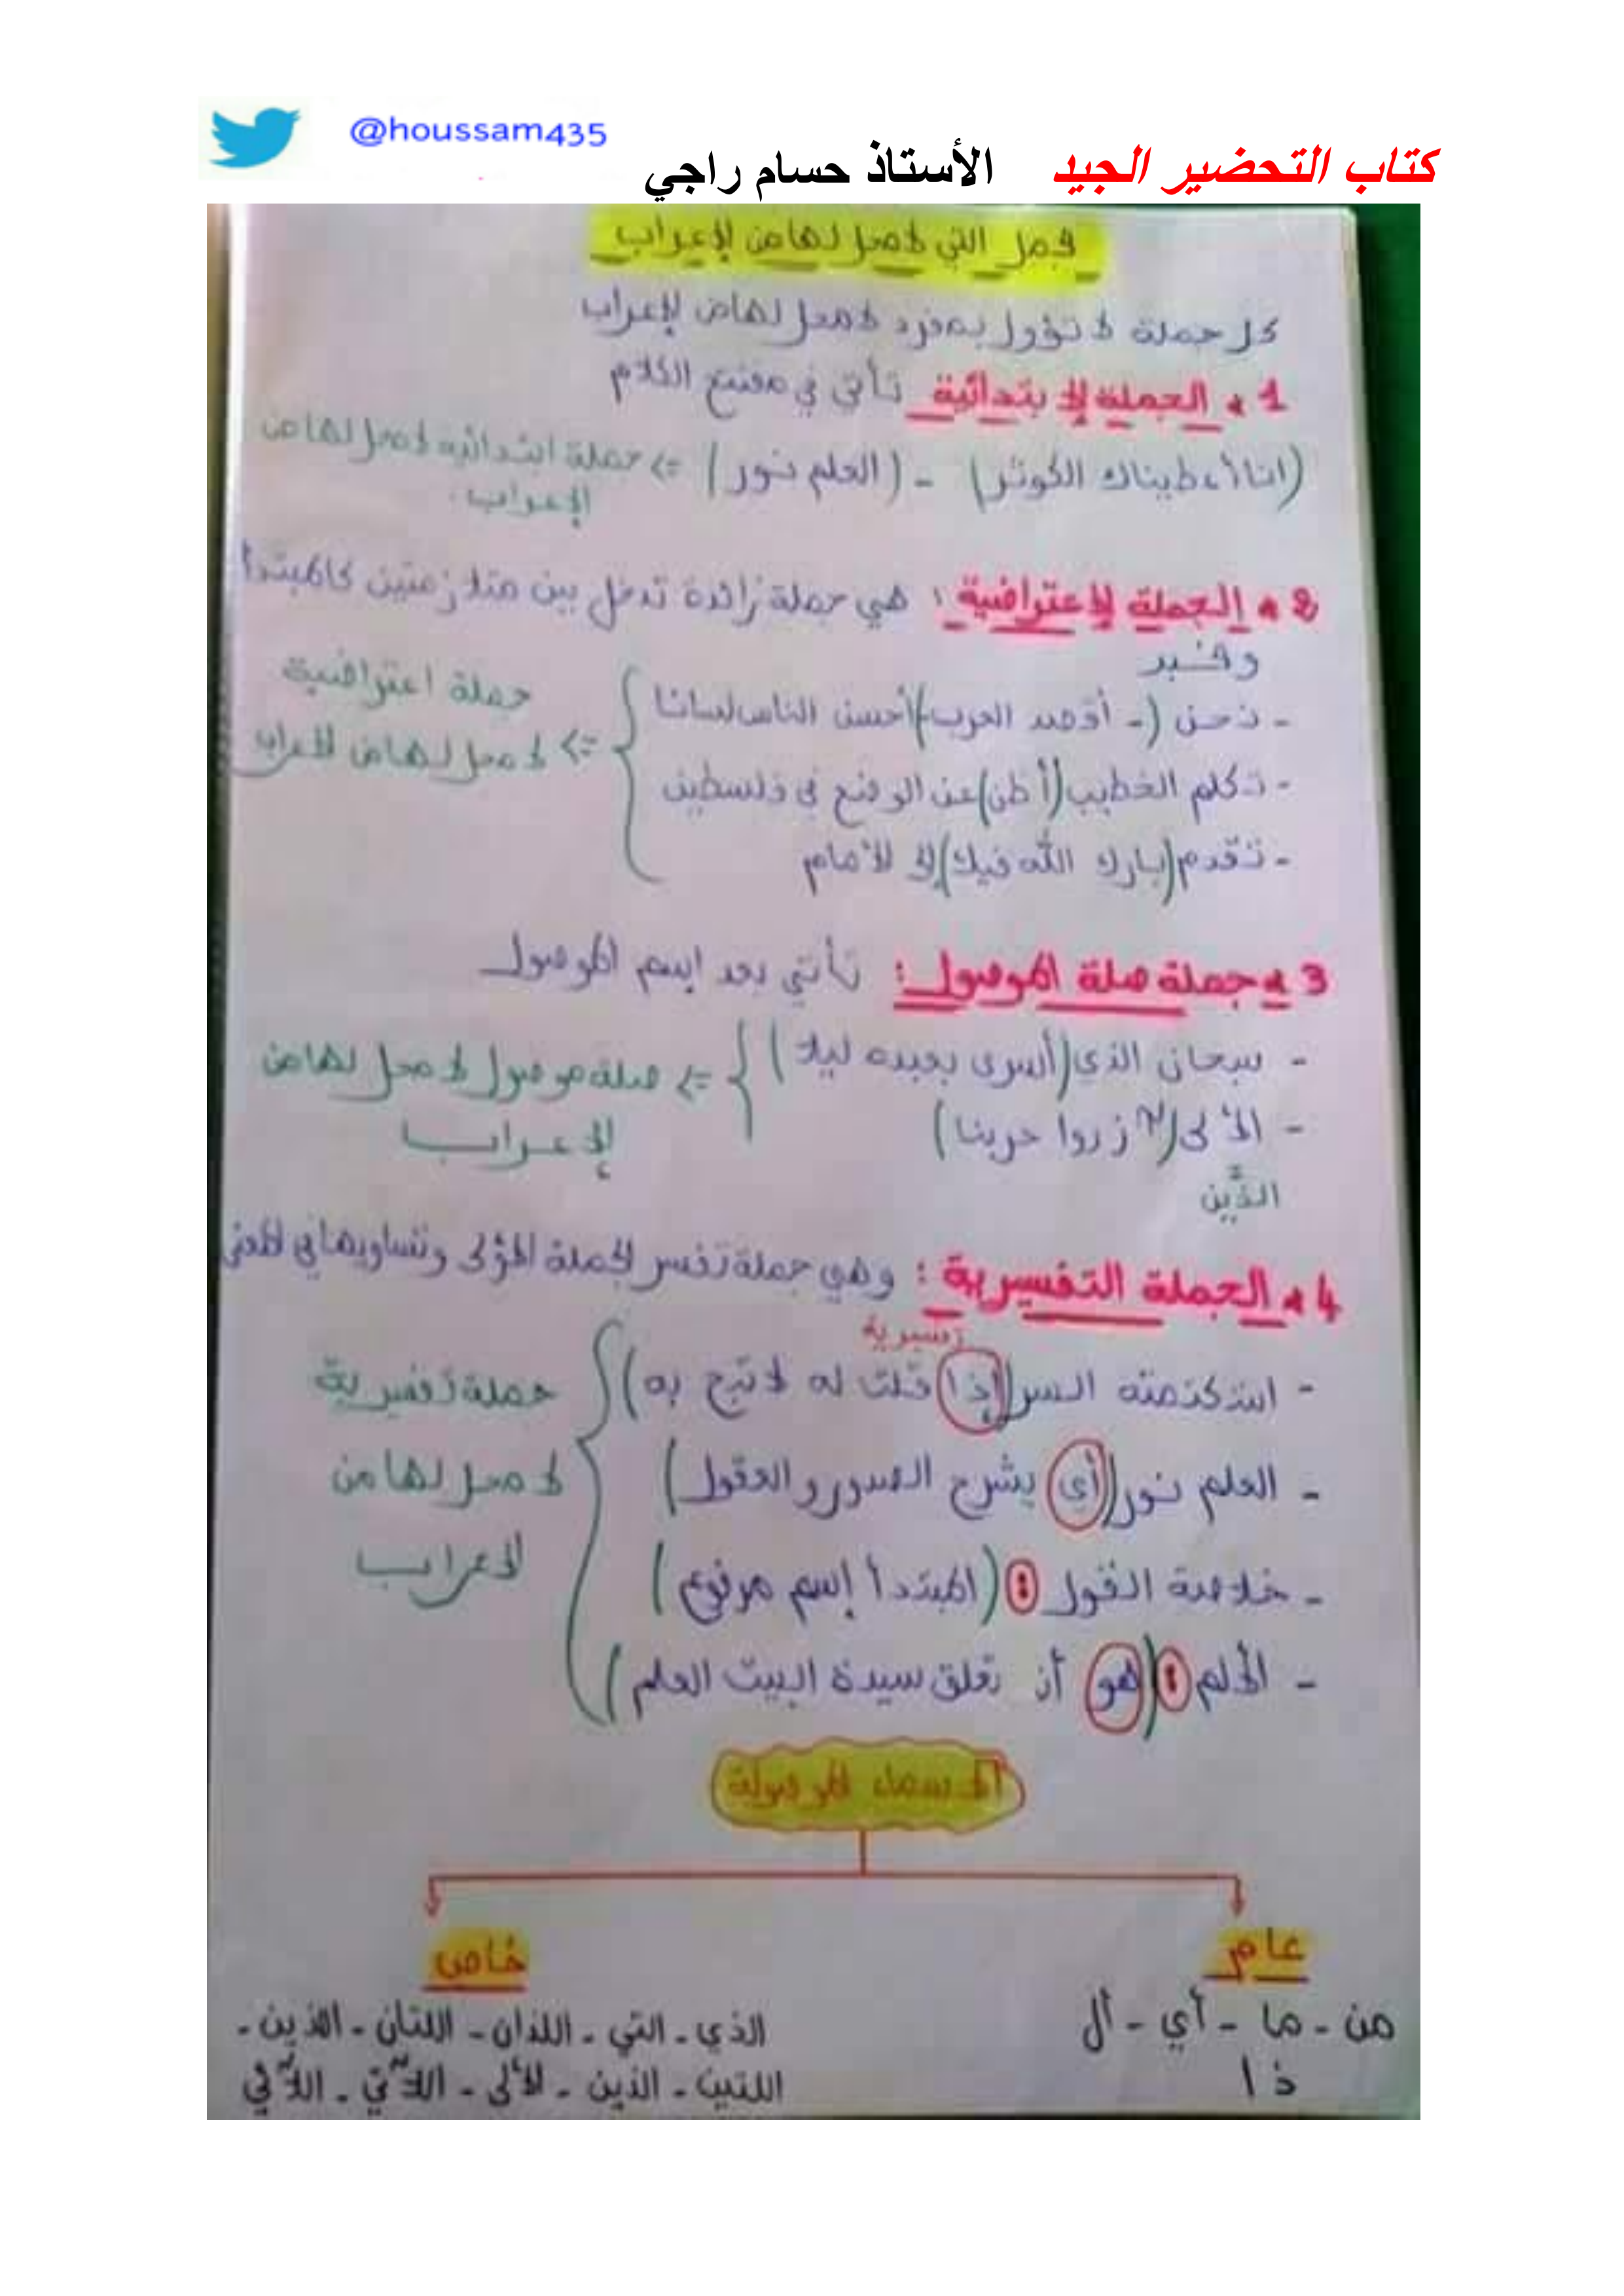 @houssam435
كتاب التحضير الجيد الأستاذ حسام راجي
الجمل التي لا محل لها من الإعراب
كل جملة لا تؤول بمفرد لا محل لها من الإعراب
1 * الجملة الإبتدائية تأتي في مفتتح الكلام
(انا أعطيناك الكوثر) - (العلم نور) => جملة ابتدائية لا محل لها من
الإعراب.
2 * الجملة الإعتراضية : هي جملة زائدة تدخل بين متلازمتين كالمبتدأ
وخبر
- نحن (- أقصد العرب-) أحسن الناس لسانا
- تكلم الخطيب (أظن) عن الوضع في فلسطين
- تقدم (بارك الله فيك) إلى الأمام
جملة اعتراضية
=> لا محل لها من الاعراب
3 * جملة صلة الموصول : تأتي بعد إسم الموصول
- سبحان الذي (أسرى بعبده ليلا)
- الألى زرعوا حربنا)
الذين
=> صلة موصول لا محل لها من
الإعراب
4 * الجملة التفسيرية : وهي جملة تفسر الجملة الأولى وتساويها في المعنى
تفسيرية
- استكتمته السر (إذا قلت له لا تبح به)
- العلم نور (أي يشرح الصدور والعقول)
- خلاصة القول : (المبتدأ إسم مرفوع)
- الحلم : (هو أن تعلق سيدة البيت العلم)
جملة تفسيرية
لا محل لها من
الاعراب
الاسماء الموصولة
عام
من - ما - أي - أل
ذا
خاص
الذي - التي - اللذان - اللتان - الذين -
اللتين - الذين - الألى - اللآتي - اللآئي